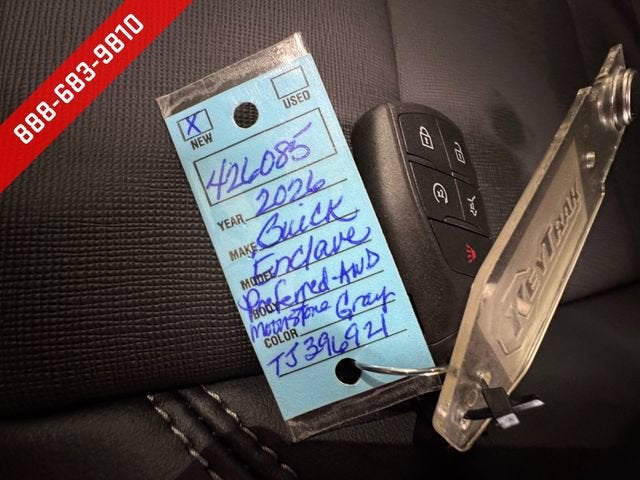 888-683-9810
X
NEW
USED
426085
YEAR 2026
MAKE Buick
MODEL Enclave
BODY Preferred-AWD
COLOR Moonstone Gray
TJ396921
KEYTRAK